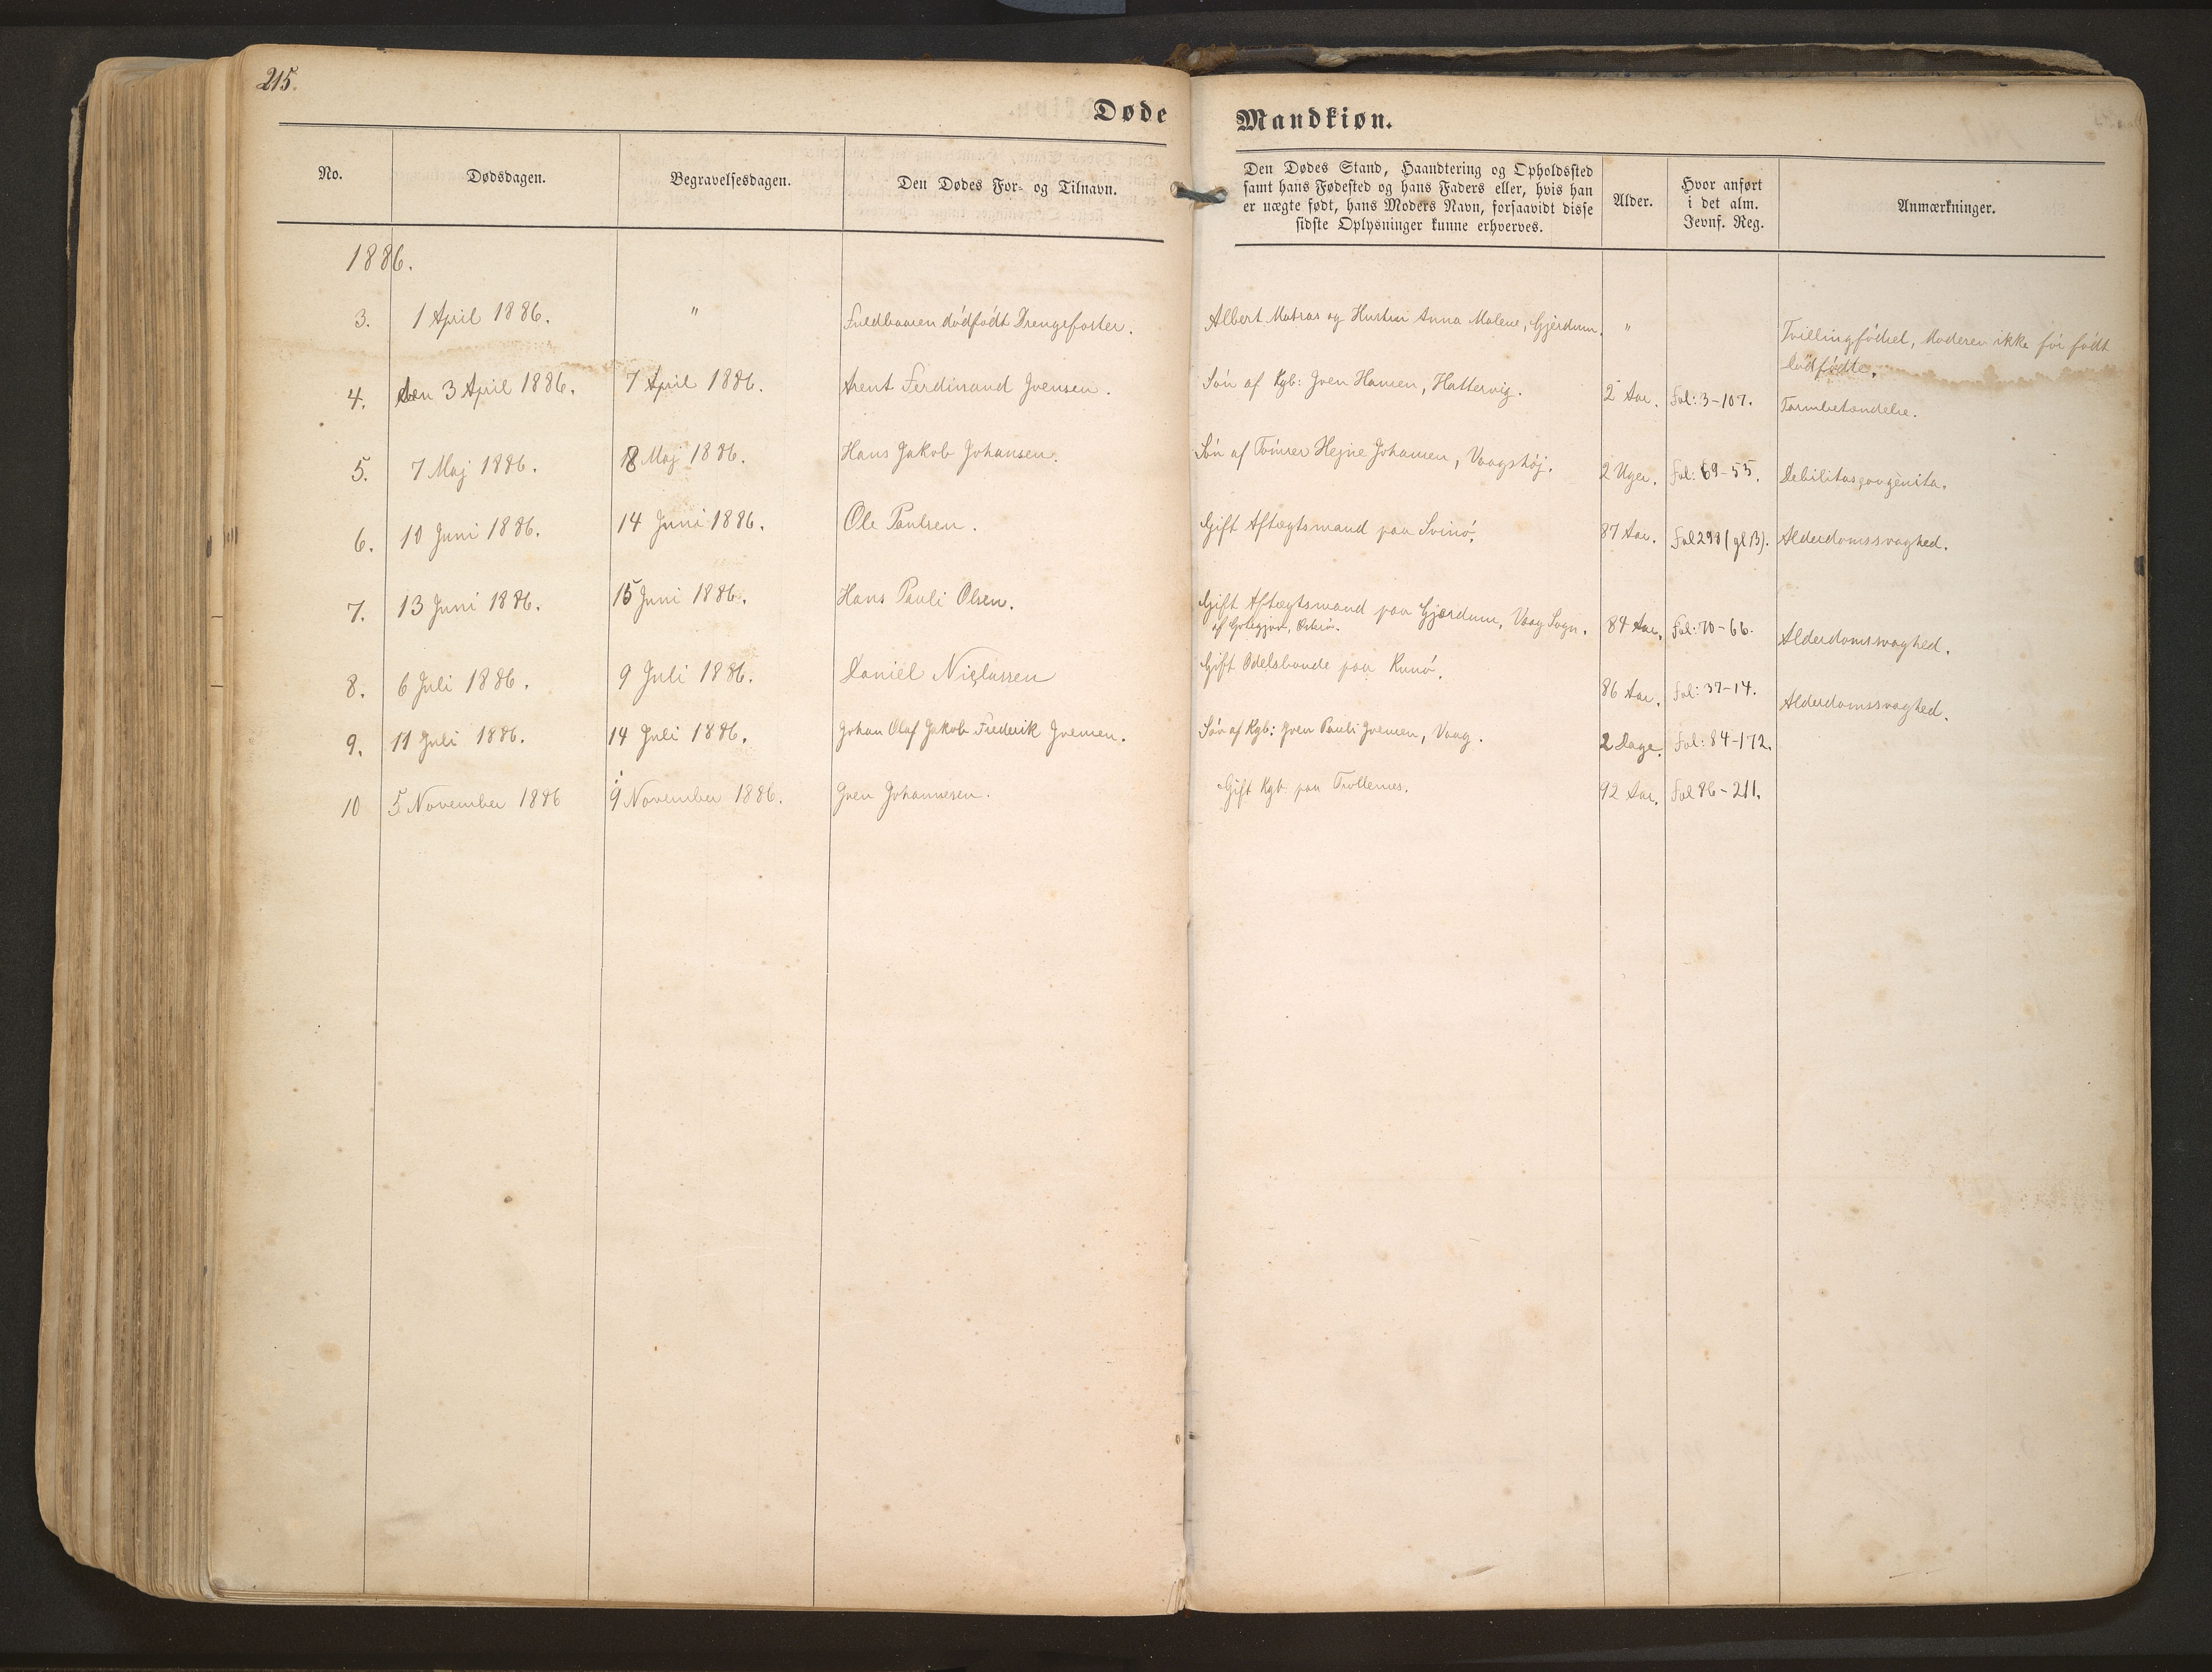 215.
Døde Mandkiøn.
No. Dødsdagen. Begravelsesdagen. Den Dødes For- og Tilnavn.
Den Dødes Stand, Haandtering og Opholdssted
samt hans Fødested og hans Faders eller, hvis han
er uægte født, hans Moders Navn, forsaavidt disse
sidste Oplysninger kunne erhverves.
Alder.
Hvor anført
i det alm.
Jevnf. Reg.
Anmærkninger.
1886.
3. 1 April 1886. " Fuldbaaren dödfödt Drengefoster. Albert Matras og Hustru Anna Malene, Gjerdum. " Tvillingfödsel, Moderen ikke för födt
dödfödte.
4. den 3 April 1886. 7 April 1886. Arent Ferdinand Ivensen. Sön af Kgb: Iven Hansen, Hattervig. 2 Aar. Fol: 3-107. Tarmbetændelse.
5. 7 Maj 1886. 18 Maj 1886. Hans Jakob Johansen. Sön af Tömrer Hejne Johansen, Vaagshöj. 2 Uger. Fol: 69-55. Debilitas congenita.
6. 10 Juni 1886. 14 Juni 1886. Ole Paulsen. Gift Aftægtsmand paa Svinö. 87 Aar. Fol 298 (gl B). Alderdomssvaghed.
7. 13 Juni 1886. 15 Juni 1886. Hans Pauli Olsen. Gift Aftægtsmand paa Gjærdum, Vaag Sogn.
af Österö. 84 Aar. Fol: 70-66. Alderdomssvaghed.
8. 6 Juli 1886. 9 Juli 1886. Daniel Niclassen Gift Odelsbonde paa Kunö. 86 Aar. Fol: 37-14. Alderdomssvaghed.
9. 11 Juli 1886. 14 Juli 1886. Johan Olaf Jakob Frederik Ivensen. Sön af Kgb: Iven Pauli Ivensen, Vaag. 2 Dage. Fol: 84-172.
10 5 November 1886 9 November 1886. Iven Johannesen. Gift Kgb. paa Trollenes. 92 Aar. Fol 86-211.